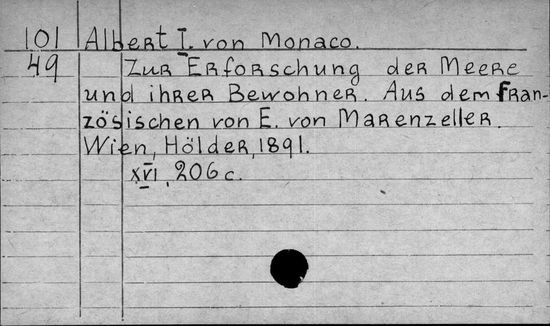 101 Albert I. von Monaco.
49 Zur Erforschung der Meere
und ihrer Bewohner. Aus dem fran-
zösischen von E. von Marenzeller.
Wien, Hölder, 1891.
XVI, 206 c.